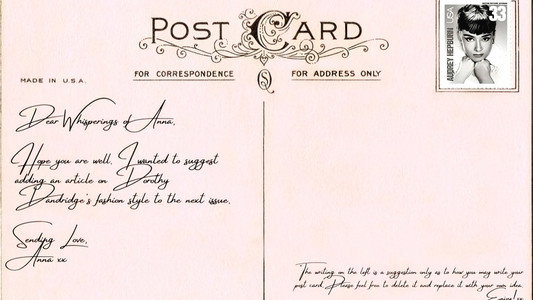 POST CARD
FOR CORRESPONDENCE
FOR ADDRESS ONLY
MADE IN U.S.A.
USA
33
AUDREY HEPBURN
Dear Whisperings of Anna,
Hope you are well. I wanted to suggest
adding an article on Dorothy
Dandridge's fashion style to the next issue.
Sending Love,
Anna xx
*The writing on the left is a suggestion only as to how you may write your
post card. Please feel free to delete it and replace it with your own idea.